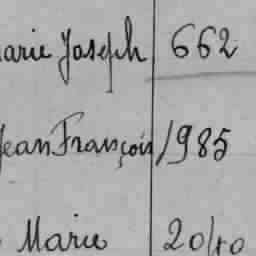 arie Joseph 662
Jean François 1985
Marie 2040